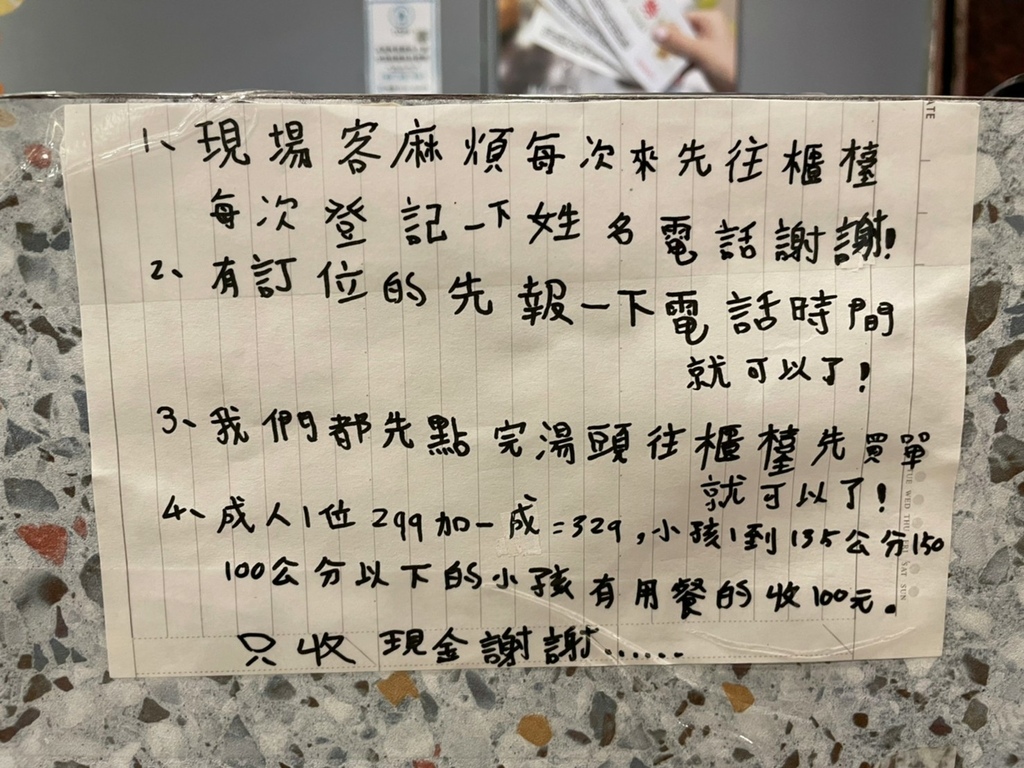 1、現場客麻煩每次來先往櫃檯
每次登記一下姓名電話謝謝!
2、有訂位的先報一下電話時間
就可以了!
3、我們都先點完湯頭往櫃檯先買單
就可以了!
4、成人1位299加一成=329,小孩1到135公分150
100公分以下的小孩有用餐的收100元。
只收現金謝謝......